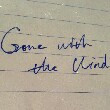 Gone with
the Wind